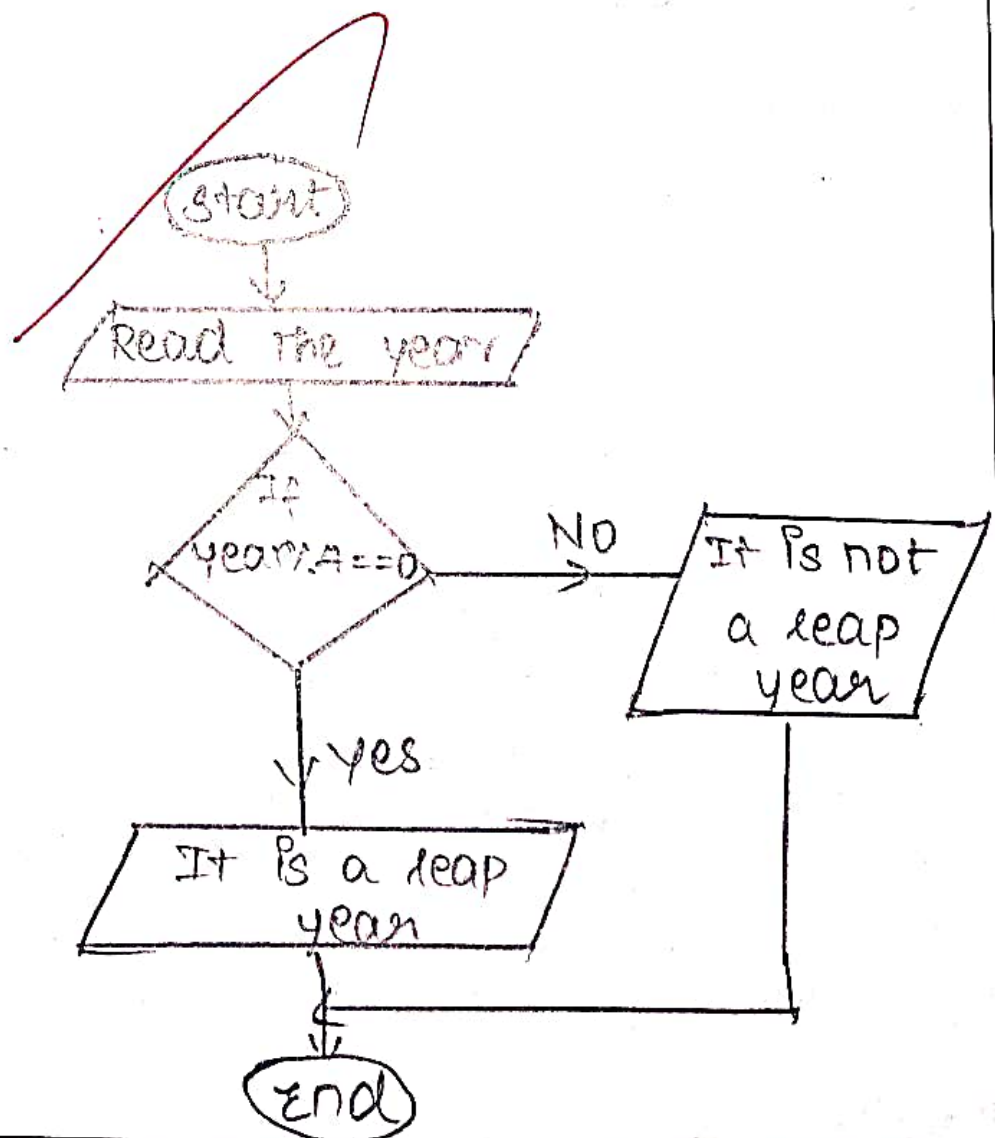 Start
Read the year
If
year%4==0
NO
It is not
a leap
year
yes
It is a leap
year
End